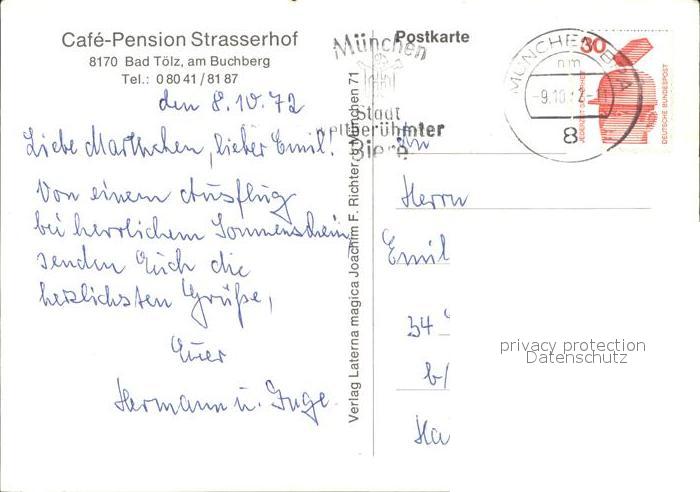 Café-Pension Strasserhof
8170 Bad Tölz, am Buchberg
Tel.: 0 80 41 / 81 87
den 8.10.72
Liebe Marthchen, lieber Emil!
Von einem Ausflug
bei herrlichem Sonnenschein,
senden Euch die
herzlichsten Grüße,
Euer
Hermann u. Inge.
Verlag Laterna magica Joachim F. Richter, 8 München 71
München
Stadt
weltberühmter
Biere
Postkarte
MÜNCHEN
nm
-9.10.72-
8
30
JEDERZEIT SICHERHEIT
DEUTSCHE BUNDESPOST
An
Herrn
Emil
34
b/
Ha
privacy protection
Datenschutz